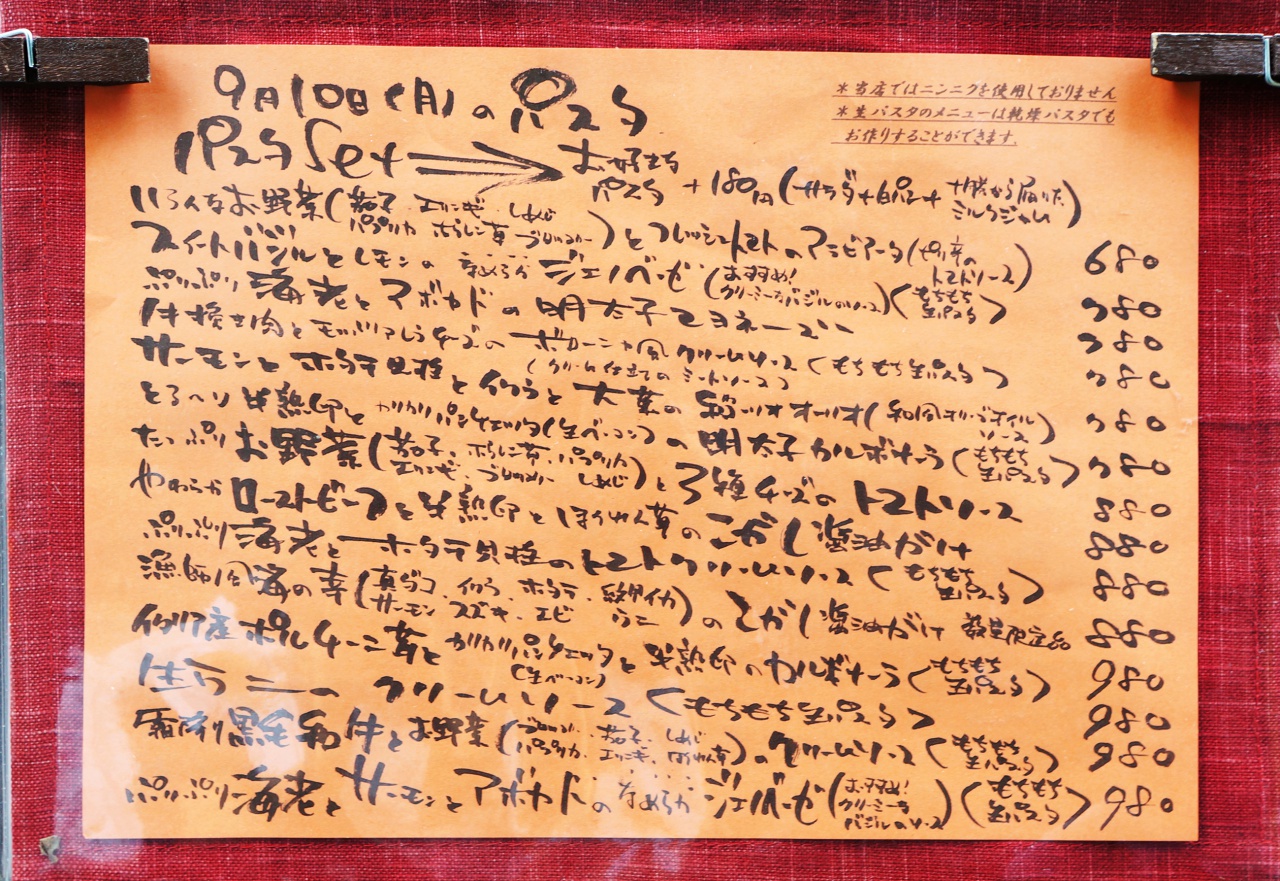 9月10日(月)のパスタ
＊当店ではニンニクを使用しておりません
＊生パスタのメニューは乾燥パスタでも
お作りすることができます。
パスタSet ⇒ お好きなパスタ +180円(サラダ+白パン+十勝から届いたミルクジャム)
いろんなお野菜(茄子、エリンギ、しめじ パプリカ ほうれん草 ブロッコリー)とフレッシュトマトのアラビアータ(ピリ辛のトマトソース) 680
スイートバジルとレモンのなめらかジェノベーゼ(おすすめ！クリーミーなバジルのソース)(もちもち生パスタ) 780
ぷりぷり海老とアボカドの明太子マヨネーズ 780
牛挽き肉とモッツァレラチーズのボローニャ風クリームソース(もちもち生パスタ) 780
(クリーム仕立てのミートソース)
サーモンとホタテ貝柱といくらと大葉のアーリオオーリオ(和風オリーブオイルソース) 780
とろ〜り半熟卵とカリカリパンチェッタ(生ベーコン)の明太子カルボナーラ(もちもち生パスタ) 780
たっぷりお野菜(茄子、ほうれん草、パプリカ エリンギ、ブロッコリー しめじ)と3種チーズのトマトソース 880
やわらかローストビーフと半熟卵とほうれん草のこがし醤油がけ 880
ぷりぷり海老とホタテ貝柱のトマトクリームソース(もちもち生パスタ) 880
漁師風海の幸(真ダコ、いくら、ホタテ、紋甲イカ サーモン スズキ、エビ うに)のこがし醤油がけ 数量限定品 880
イタリア産ポルチーニ茸とカリカリパンチェッタ(生ベーコン)と半熟卵のカルボナーラ(もちもち生パスタ) 980
生ウニのクリームソース(もちもち生パスタ) 980
霜降り黒毛和牛とお野菜(ブロッコリー、茄子、しめじ パプリカ、エリンギ、ほうれん草)のクリームソース(もちもち生パスタ) 980
ぷりぷり海老とサーモンとアボカドのなめらかジェノベーゼ(おすすめ！クリーミーなバジルのソース)(もちもち生パスタ) 980